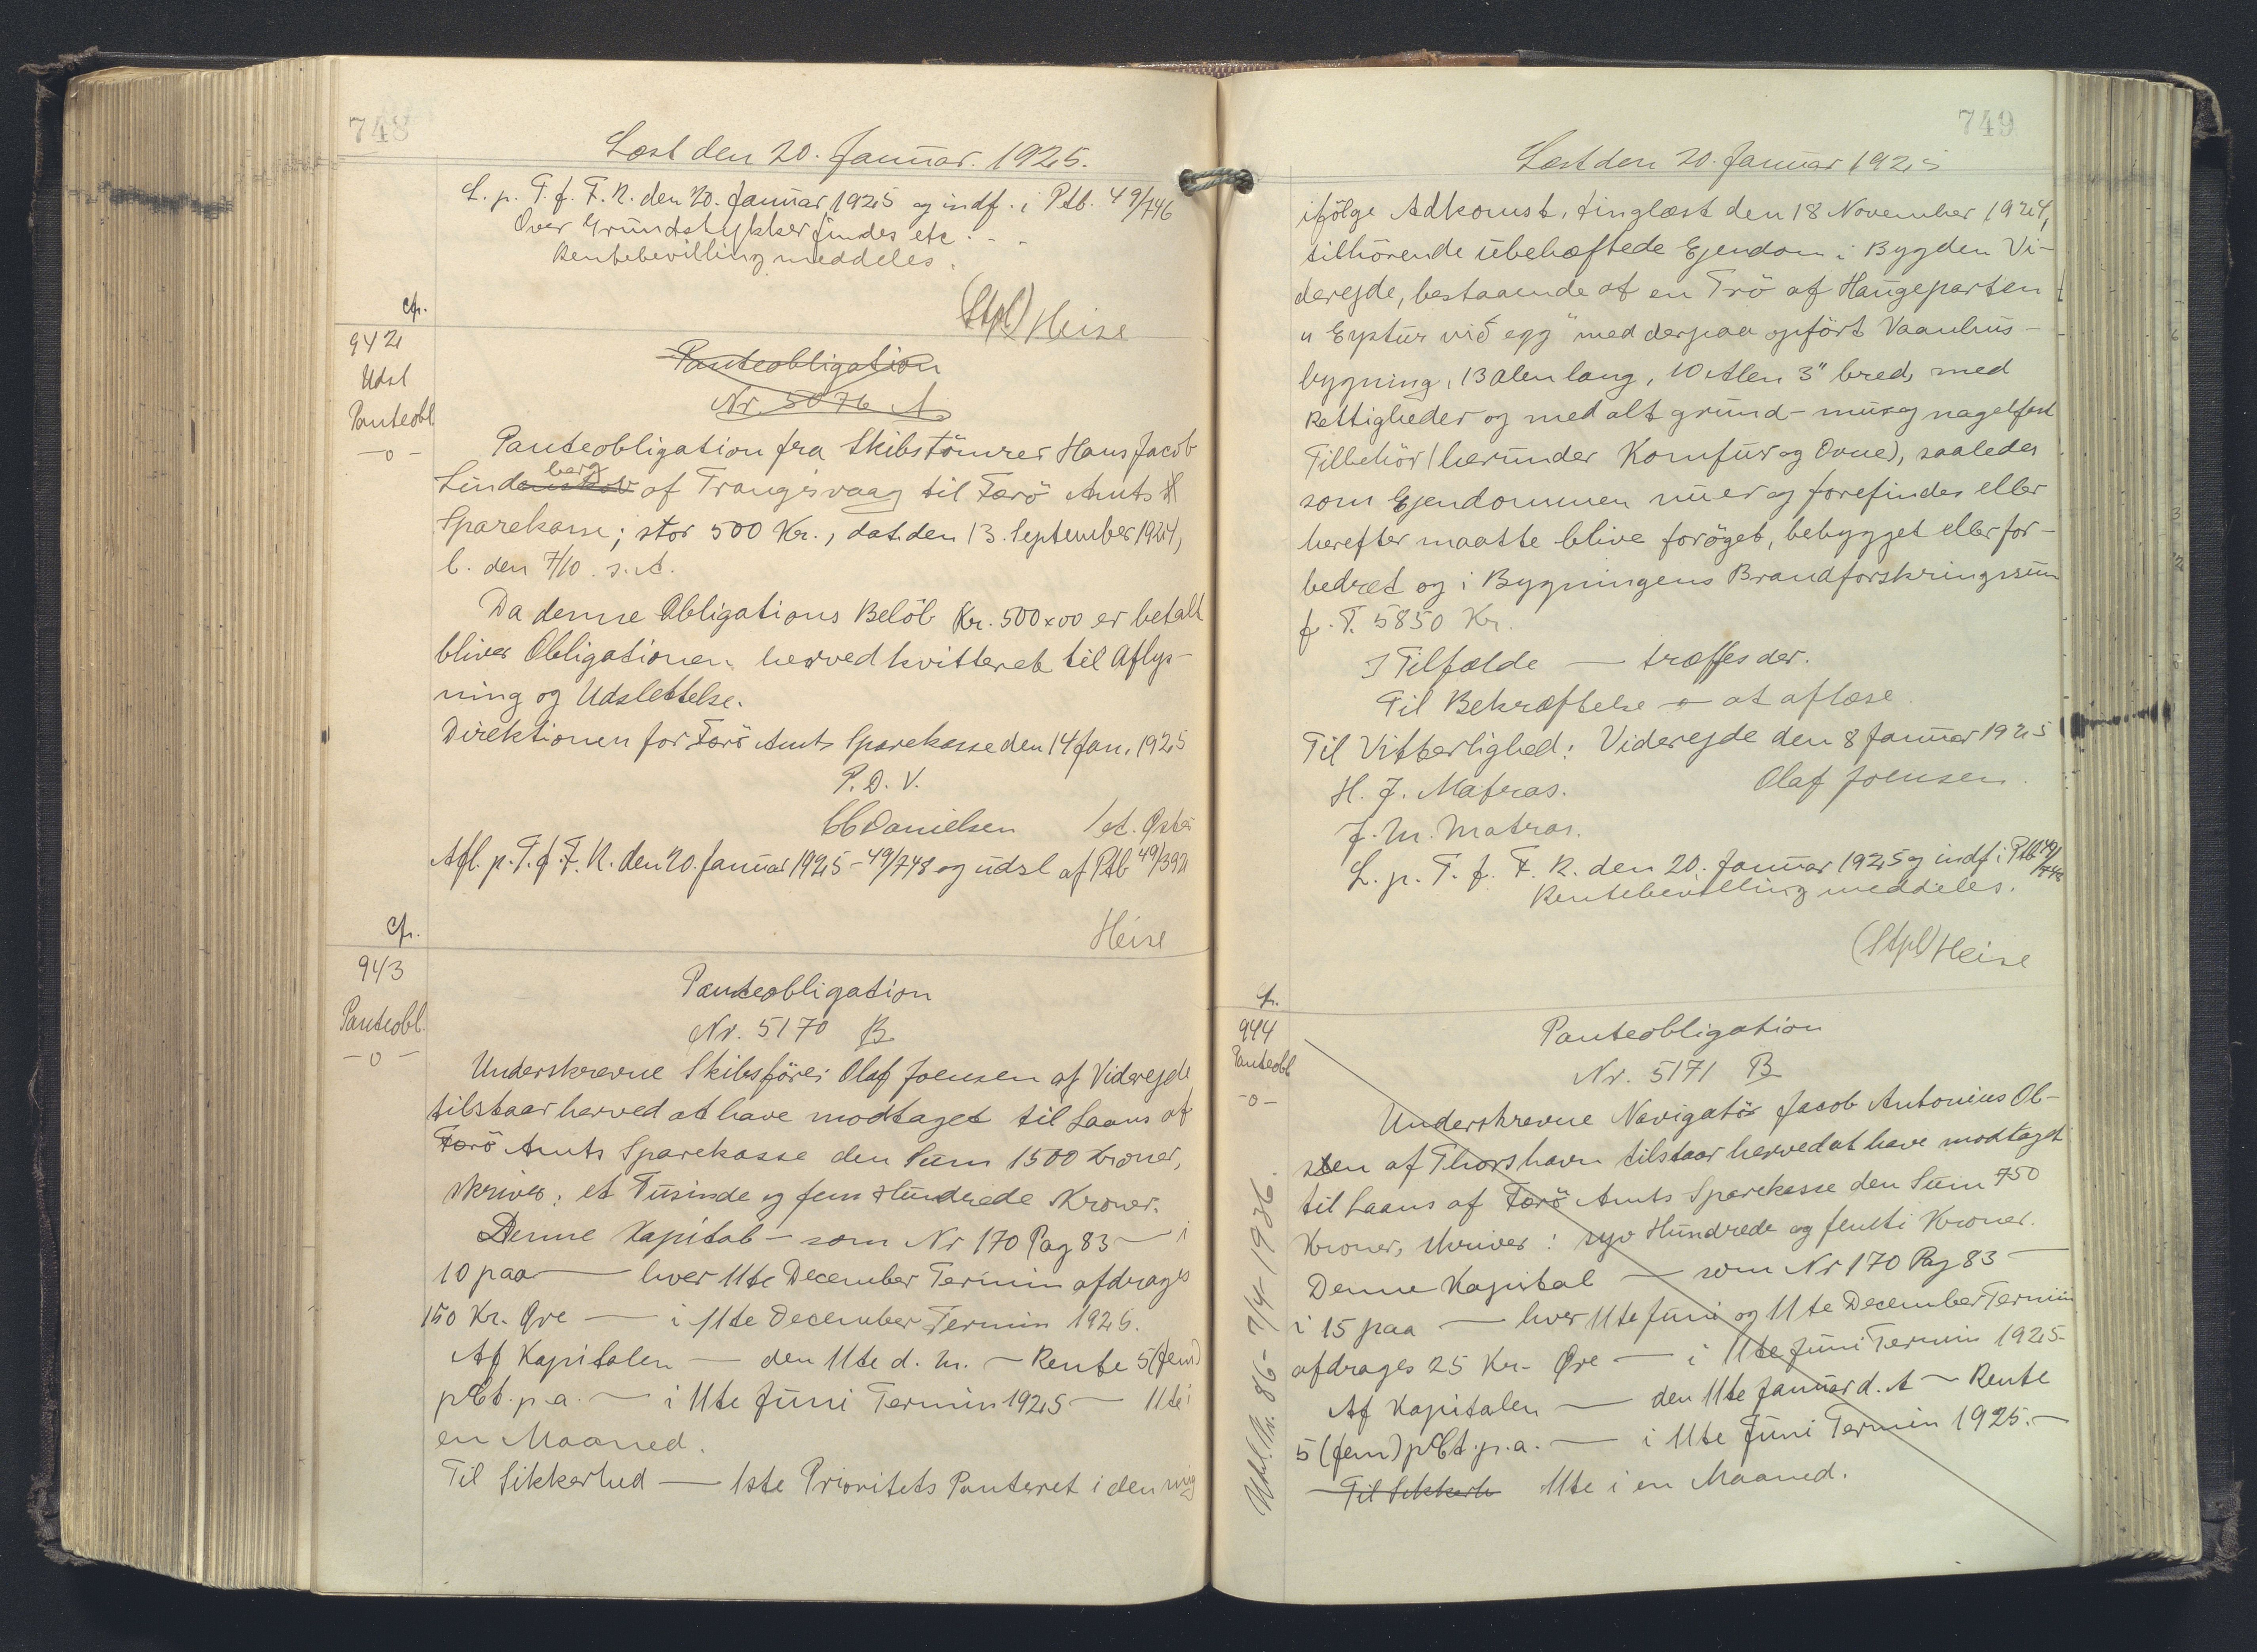 748
Læst den 20. Januar. 1925.
L. p. T. f. F. R. den 20. Januar 1925 og indf. i Ptb. 49/746
Over Grundstykker findes etc. - -
Rentebevilling meddeles.
(Stpl) Heise
cfr.
942
Udsl
Panteobl.
-o-
Panteobligation
Nr. 5076 A
Panteobligation fra Skibstömrer Hans Jacob
Lindenskov berg af Trangisvaag til Færö Amts
Sparekasse; stor 500 Kr., dat. den 13. September 1924,
l. den 7/10. s. A.
Da denne Obligations Belöb Kr. 500x00 er betalt
bliver Obligationen herved kvitteret til Aflys-
ning og Udslettelse.
Direktionen for Færö Amts Sparekasse den 14 Jan. 1925
P. D. V.
CC Danielsen
Afl. p. T. f. F. R. den 20. Januar 1925 - 49/748 og udsl af Ptb 49/392
Heise
cfr.
943
Panteobl.
-o-
Panteobligation
Nr. 5170 B
Underskrevne Skibsförer Olaf Joensen af Viderejde
tilstaar herved at have modtaget til Laans af
Færö Amts Sparekasse den Sum 1500 Kroner,
skriver: et Tusinde og fem Hundrede Kroner.
Denne Kapital - som Nr 170 Pag 83 - i
10 paa — hver 11te December Termin afdrages
150 Kr. Øre — i 11te December Termin 1925.
Af Kapitalen — den 11te d. M. - Rente 5 (fem)
pCt. p. a. — i 11te Juni Termin 1925 - 11te i
en Maaned.
Til Sikkerhed — 1ste Prioritets Panteret i den mig
749
Læst den 20. Januar 1925
ifölge Adkomst, tinglæst den 18 November 1924,
tilhörende ubehæftede Ejendom i Bygden Vi-
derejde, bestaaende af en Trö af Haugeparten
"Eystur við egg" med derpaa opfört Vaanhus-
bygning, 13 Alen lang, 10 Alen 3" bred, med
Rettigheder og med alt grund- mur og nagelfast
Tilbehör (herunder Komfur og Ovne), saaledes
som Ejendommen nu er og forefindes eller
herefter maatte blive foröget, bebygget eller for-
bedret og i Bygningens Brandforskringssum
f. T. 5850 Kr.
I Tilfælde — træffes der.
Til Bekræftelse — at aflæse.
Til Vitterlighed: Viderejde den 8 Januar 1925
H. J. Matras. Olaf Joensen.
J. M. Matras.
L. p. T. f. F. R. den 20. Januar 1925 og indf i Ptb 49/748
Rentebevilling meddeles.
(Stpl) Heise
cfr.
944
Panteobl
-o-
Panteobligation
Nr. 5171 B
Underskrevne Navigatör Jacob Antonius Ol-
sen af Thorshavn tilstaar herved at have modtaget
til Laans af Færö Amts Sparekasse den Sum 750
Kroner, skriver: syv Hundrede og femti Kroner.
Denne Kapital — som Nr 170 Pag 83 -
i 15 paa — hver 11te Juni og 11te December Termin
afdrages 25 Kr. Øre — i 11te Juni Termin 1925
Af Kapitalen — den 11te Januar d. A - Rente
5 (fem) pCt. p. a. — i 11te Juni Termin 1925. -
Til Sikkerh 11te i en Maaned.
Udsl. Nr. 86 - 7/4 1936.